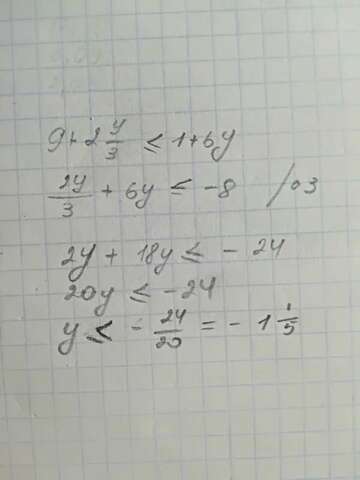 9+2 y/3 ≤ 1+6y
2y/3 + 6y ≤ -8 /·3
2y + 18y ≤ - 24
20y ≤ -24
y ≤ - 24/20 = - 1 1/5